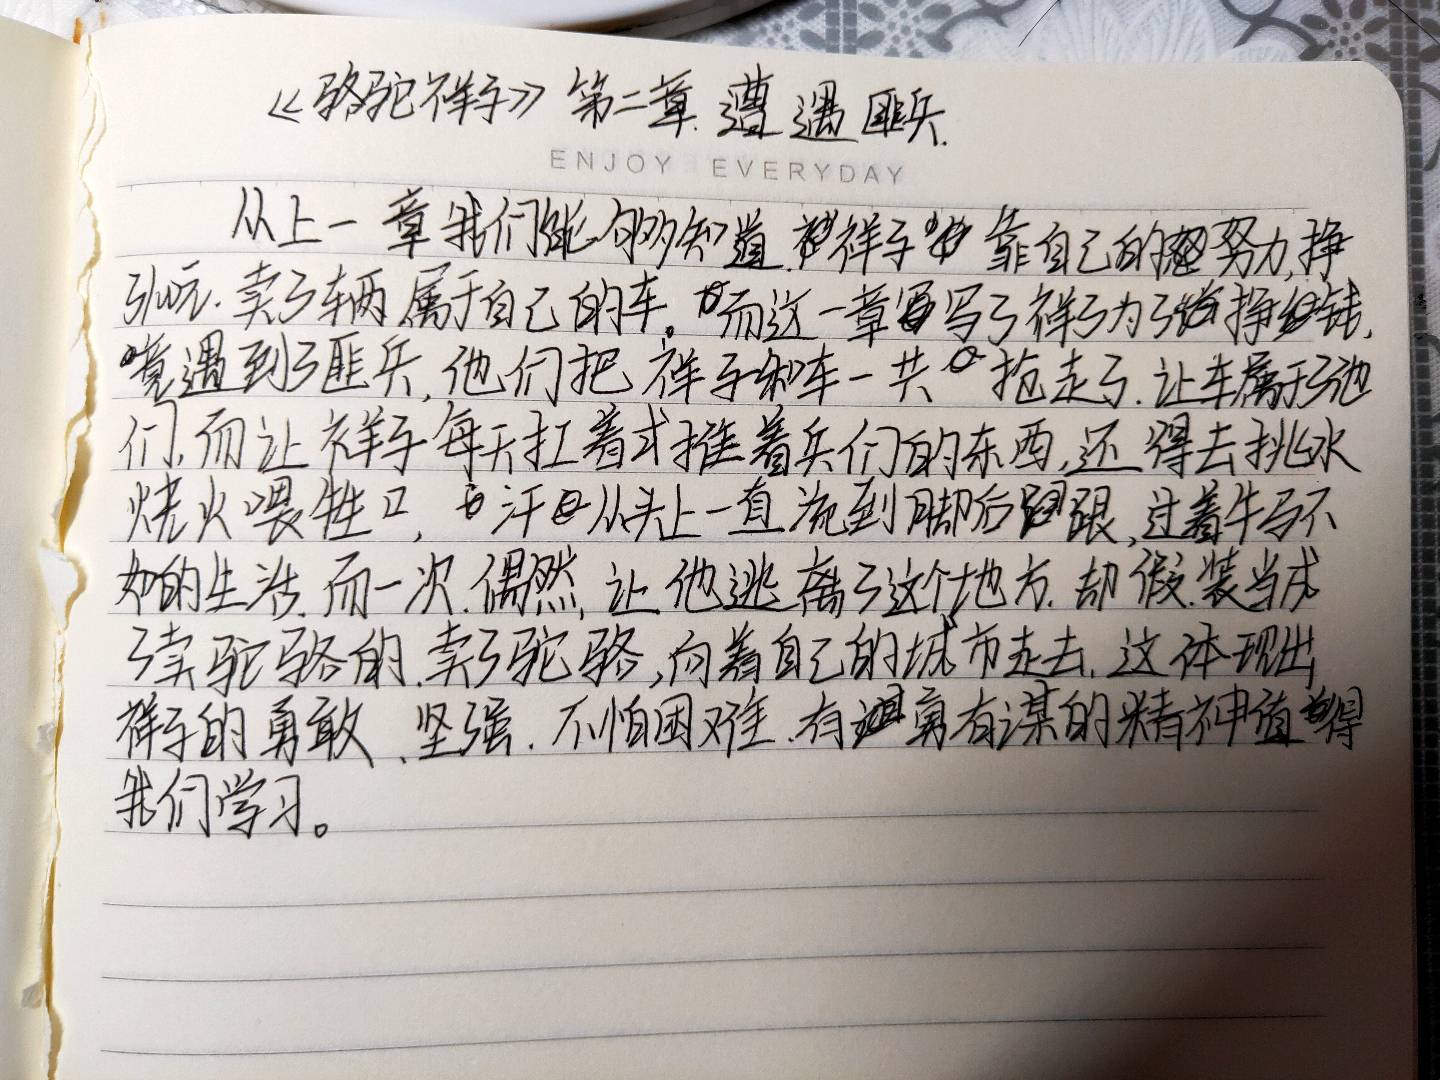 《骆驼祥子》第二章.遭遇匪兵.
ENJOY EVERYDAY
从上一章我们能够知道.祥子靠自己的努力,挣
了100元.卖了车两属于自己的车。而这一章写了祥子为了挣钱,
竟遇到了匪兵,他们把祥子和车一共抢走了.让车属于了他
们,而让祥子每天扛着或推着兵们的东西,还得去挑水
烧火喂牲口,汗从头上一直流到脚后跟,过着牛马不
如的生活.而一次.偶然,让他逃离了这个地方.却假装当成
了卖驼骆的.卖了驼骆,向着自己的城市走去.这体现出
祥子的勇敢、坚强.不怕困难.有勇有谋的精神值得
我们学习。